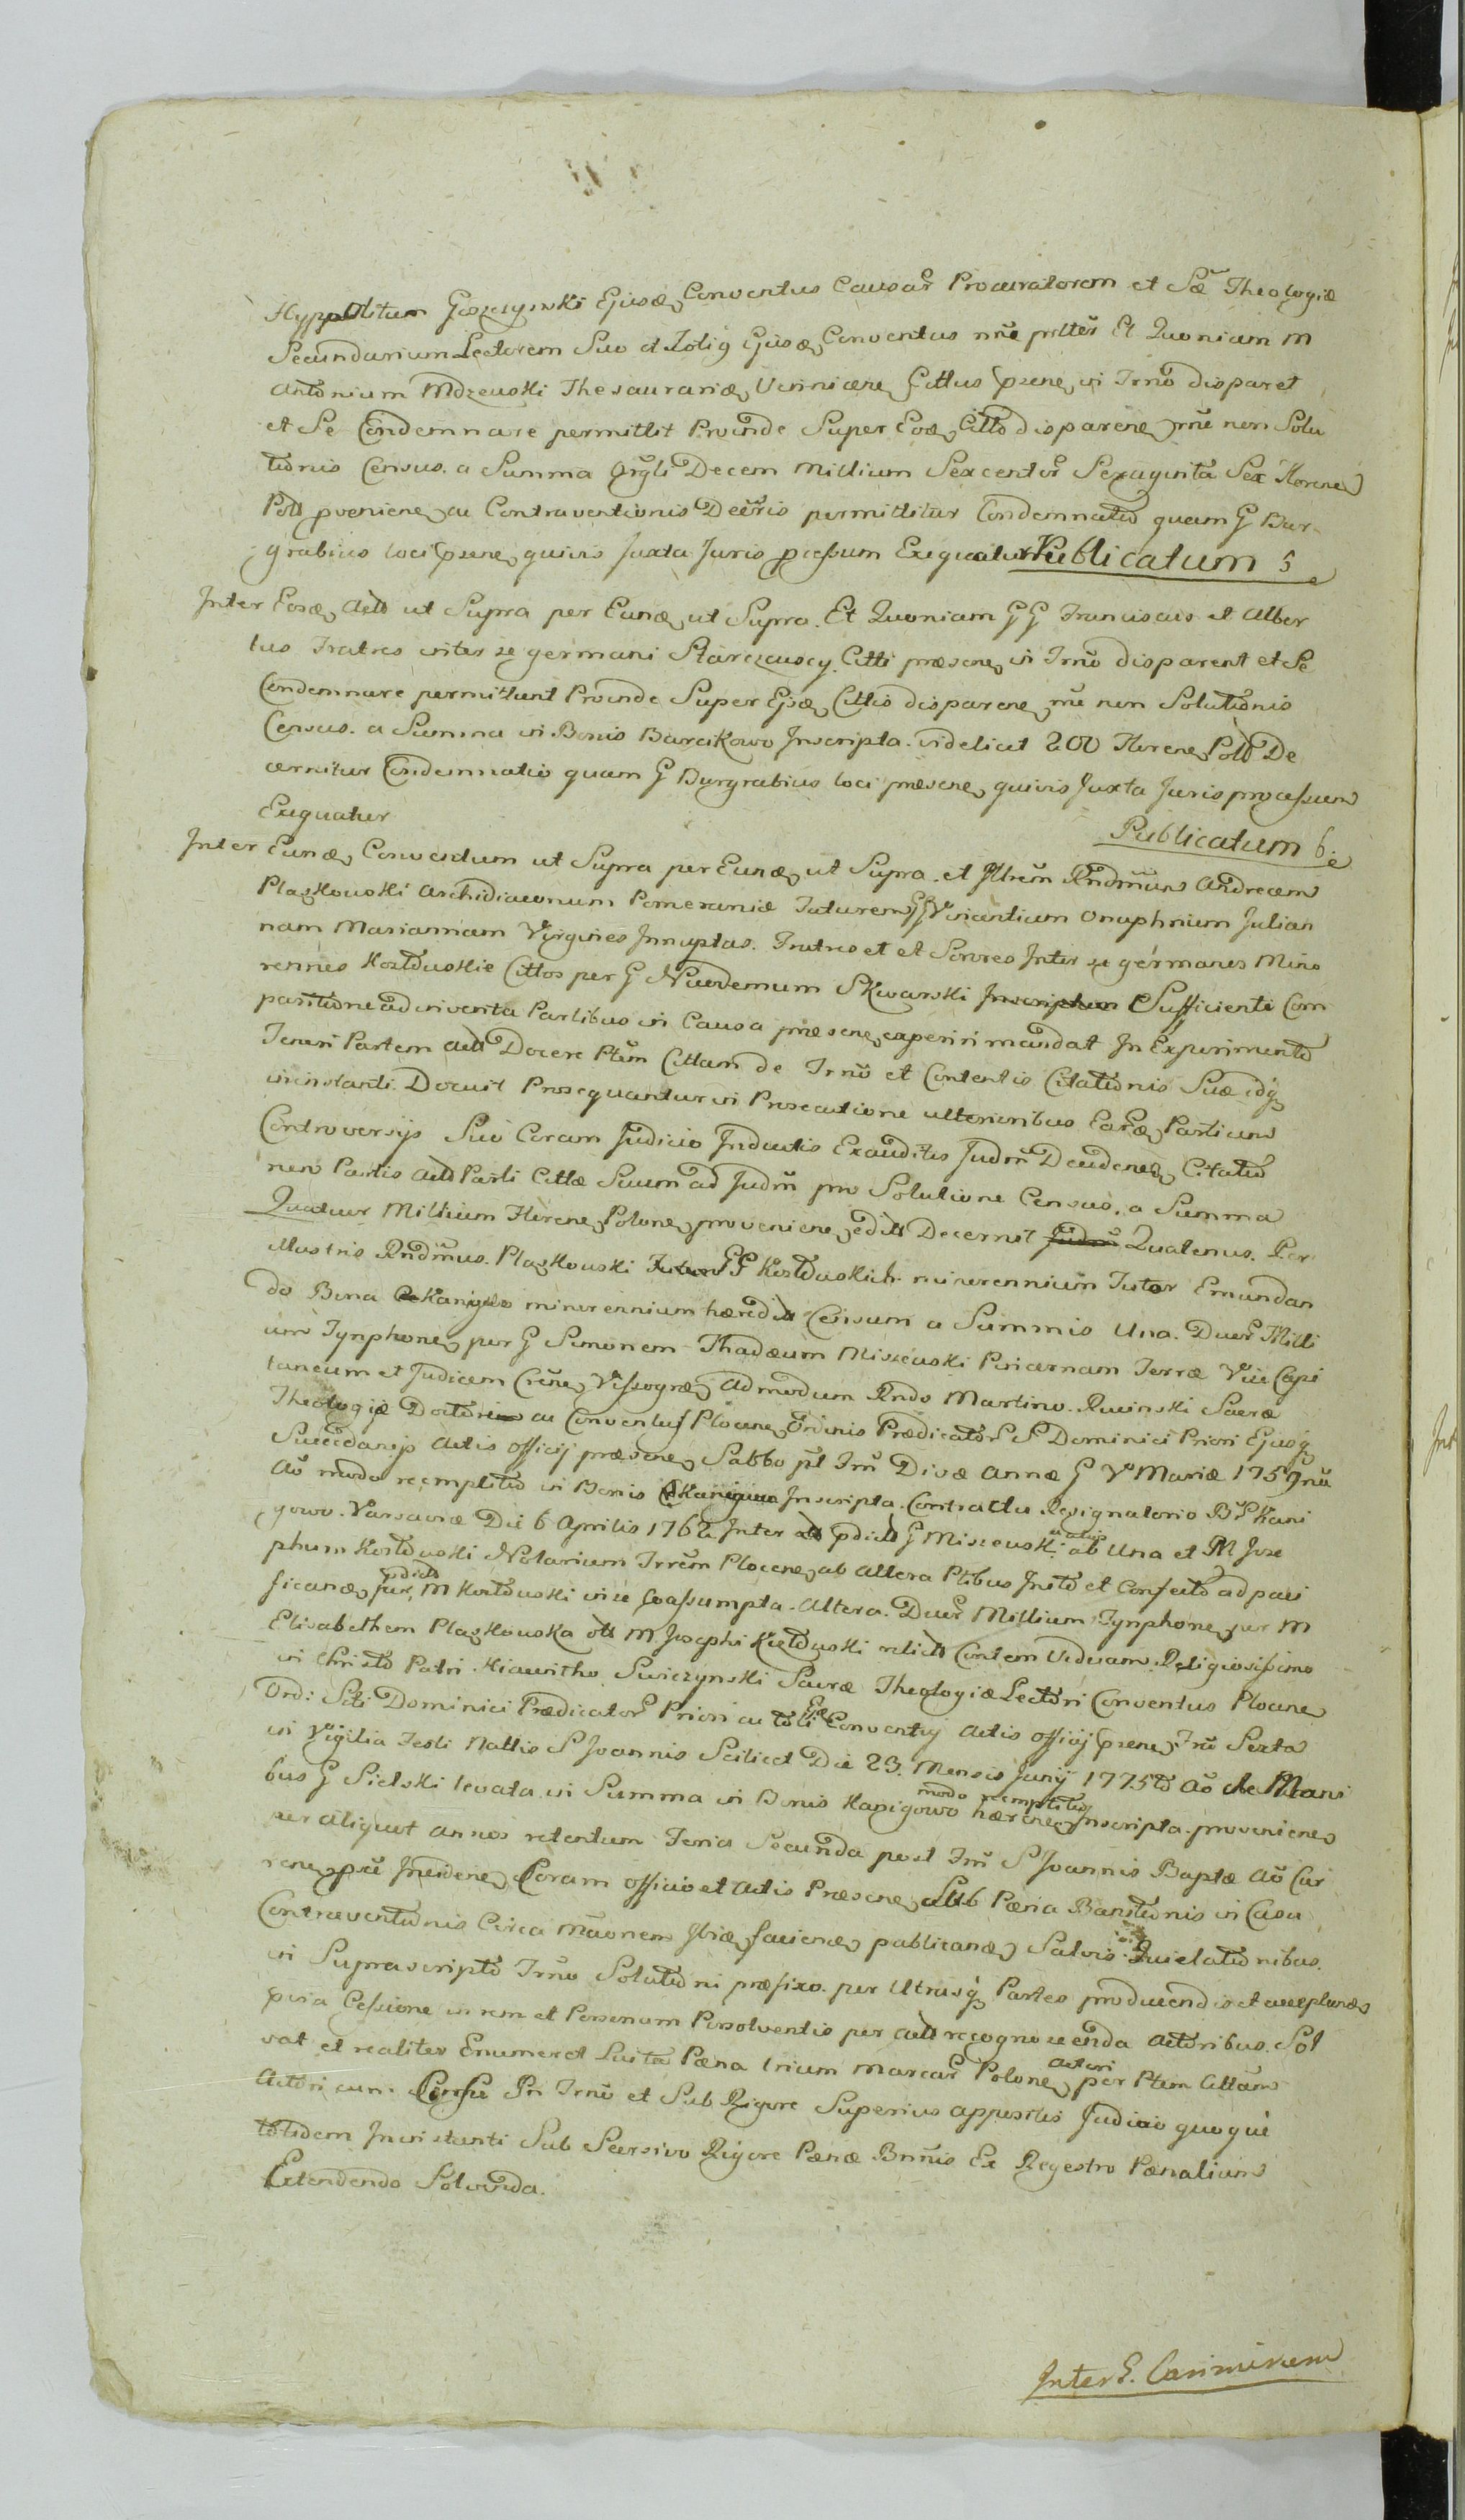 Hyppolitum Goszczynski Ejusd, Conventus Causar Procuratorem et Sæ Theologiæ
Secundarium Lectorem Suo et Totiq Ejusd, Conventus nne prttes Et Quoniam M
Antonium Mdzeuski Thesaurariæ, Citttus prene, in Trno disparet
et Se Condemnare permittit Proinde Super Eod, Citto disparene, rne non Solu
tionis Census. a Summa Orgli Decem Millium Sexcentor Sexaginta Sex Florene,
Poll proveniene, ac Contraventionis Decris permittitur Condemnatio quam G Bur-
grabius loci prene, quivis Juxta Juris processum Exequatur Publicatum 5
Inter Eosd, Acto ut Supra per Eund, ut Supra. Et Quoniam GG Franciscus et Alber
tus Fratres inter se germani Starczeuscy Citti præsene, in Trno disparent et Se
Condemnare permittunt Proinde Super Ejsd, Cittis disparene, rne non Solutionis
Census. a Summa in Bonis Barcikowo Inscripta. videlicet 200 Florene, Poll De
cernitur Condemnatio quam G Burgrabius loci præsene, quivis Juxta Juris processum
Exequatur
Publicatum 6.
Inter Eund, Conventum ut Supra per Eund, ut Supra. et Illrem Rndmum Andream
Plaskouski Archidiaconum Pomeraniæ Tutorem GG Vincentium Onuphrium Julian
nam Mariannam Virgines Innuptas. Fratres et et Sorores Inter se germanes Mino
rennes Kostduskie Cittos per G Nicodemum Skwarski Sufficienti Com
paritione adinventa Partibus in Causa præsene, experiri mandat In Experimento
Teneri Partem Acto Docere Ptem Cittam de Trno et Contentis Citationis Suæ idq,
ininstanti Docuit Prosequantur in Prosecutione ulterioribus Earud, Partium
Controversijs Suo Coram Judicio Inductis Exauditis Judm Decidene, Citatio
nem Partis Acto Parti Cittæ Suum ad Judm pro Solutione Census. a Summa
Quatuor Millium Florene, Polone, proveniene, edito Decernit Quatenus. Per
illustris Rndmus. Plaskouski GG Kostduskich. minorennium Tutor Emundan
do Bona Kanigowo minorennium hæredito Censum a Summis Una. Duor Milli
um Tynphone, per G Simonem Thadæum Miszeuski Pincernam Terræ Vice Capi
taneum et Judicem Crene, Vissogre, Admodum Rndo Martino. Rucinski Sacræ
Theologiæ Doctori ac Conventus Plocene, Ordinis Prædicator S Dominici Priori Ejusq
Succedanijs Actis Officij præsene, Sabbo pt Trm Divæ Annæ G V Mariæ 1759nu
Ao modo reemptito in Bonis Kanigowo Inscripta. Contractu Resignatorio B Kani
gowo. Varsaviæ Die 6 Aprilis 1762 Inter pdicto G Miszeuski ab Una et M Jose
phum Kostduski Notarium Trrem Plocene, ab altera Ptibus Inito et Confecto ad paci
ficand, per pdicto M Kostduski in se Coassumpta. Altera. Duor Millium Tynphone, per M
Elisabetham Plaskouska olt M. Josephi Kostduski relicto Contem Viduam Religiosissimo
in Christo Patri Hiacintho Swiczynski Sacræ Theologiæ Lectori Conventus Plocene,
Ord: Scti Dominici Prædicator Priori ac toti Ejsd Conventuj Actis officij prene, Fra Sexta
in Vigilia Festi Nattis S Joannis Scilicet Die 23. Mensis Junij 1775to Ao de Mani
bus G Sielski levata in Summa in Bonis Kanigowo modo reemptito hærene, Inscripta. proveniene,
per aliquot annos retentum Feria Secunda post Frm S Joannis Baptæ Ao Cur
rene, pre Incidene, Coram officio et Actis Præsene, Sub Pæna Banitionis in Casu
Contraventionis Circa mtionem Ibid, faciend, publicand, Salvis Quietationibus.
in Suprascripto Trno Solutioni præfixo. per Utrasq Partes producendis et acceptand,
pvia Cessione in rem et Personam Persolventis per Acto recognoscenda Actoribus. Sol
vat et realiter Enumeret Luita Pæna trium Marcar Polone, Actori per Ptem Cittam
Actori cum Censu In Trno et Sub Rigore Superius appositis Judicio quoque
totidem Ininstanti Sub Secrsivo Rigore Pænæ Bnnis Ex Regestro Pænalium
Extendendo Solvenda.
Inter G. Casimirum